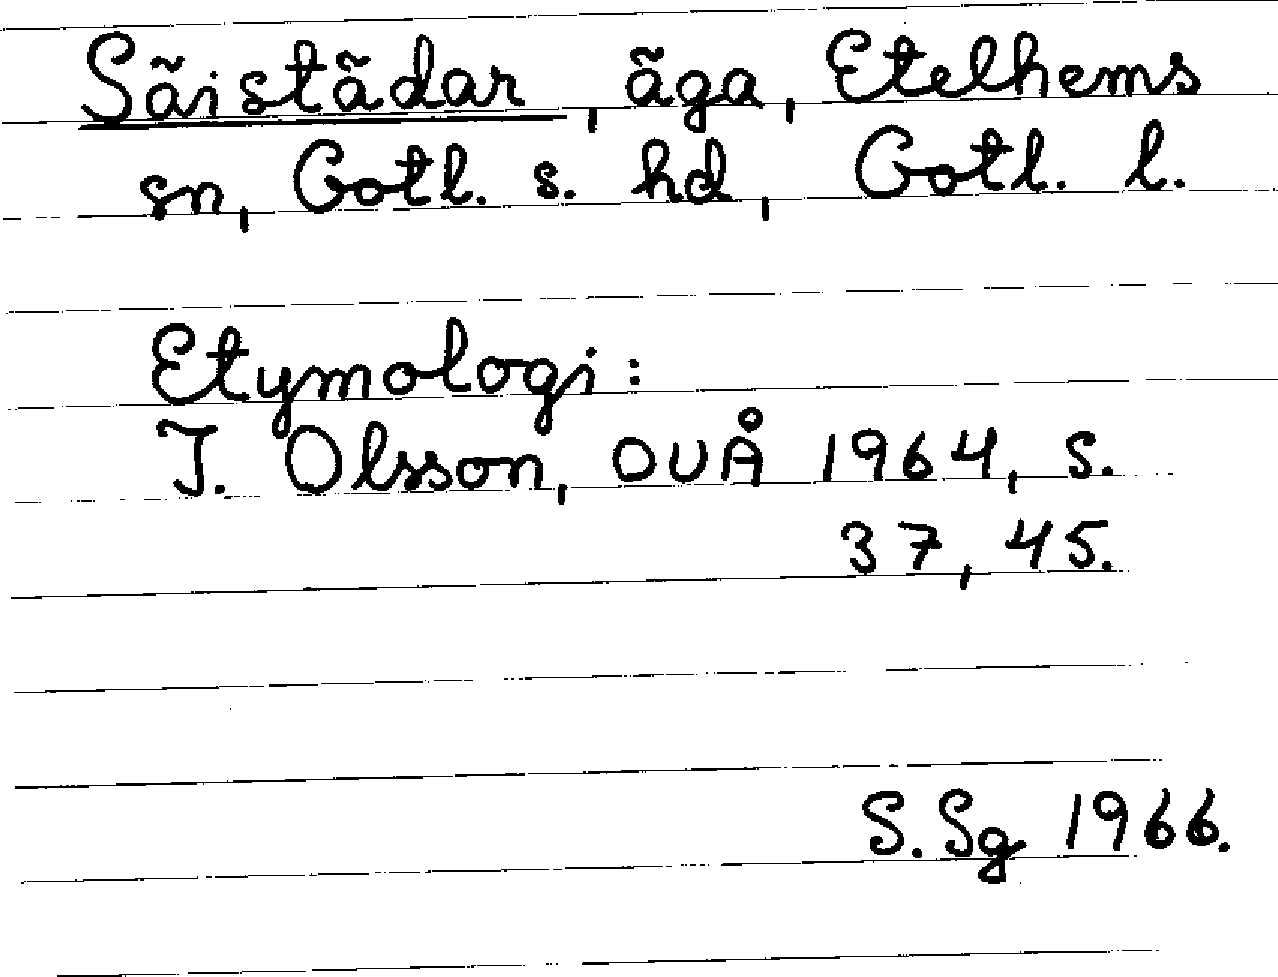 Sãistãdar, ãga, Etelhems
sn, Gotl. s. hd, Gotl. l.
Etymologi:
I. Olsson, OUÅ 1964, s.
37, 45.
S. Sg 1966.